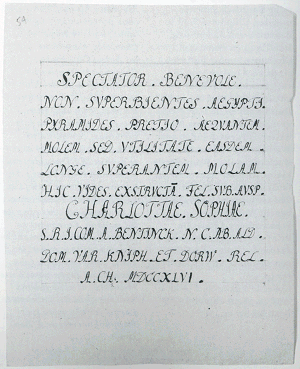 SPECTATOR . BENEVOLE .
NON . SVPERBIENTES . AEGYPTI .
PYRAMIDES . PRETIO . AEQVANTEM .
MOLEM . SED . VTILITATE . EASDEM .
LONGE . SVPERANTEM . MOLAM .
HIC . VIDES . EXSTRUCTĀ . FEL . SVB . AVSP .
CHARLOTTAE . SOPHIAE .
S . R . I . COM . A . BENTINCK . N . C . AB . ALD .
DOM . VAR . KNIPH . ET . DORW . REL .
A . CH . MDCCXLVI .